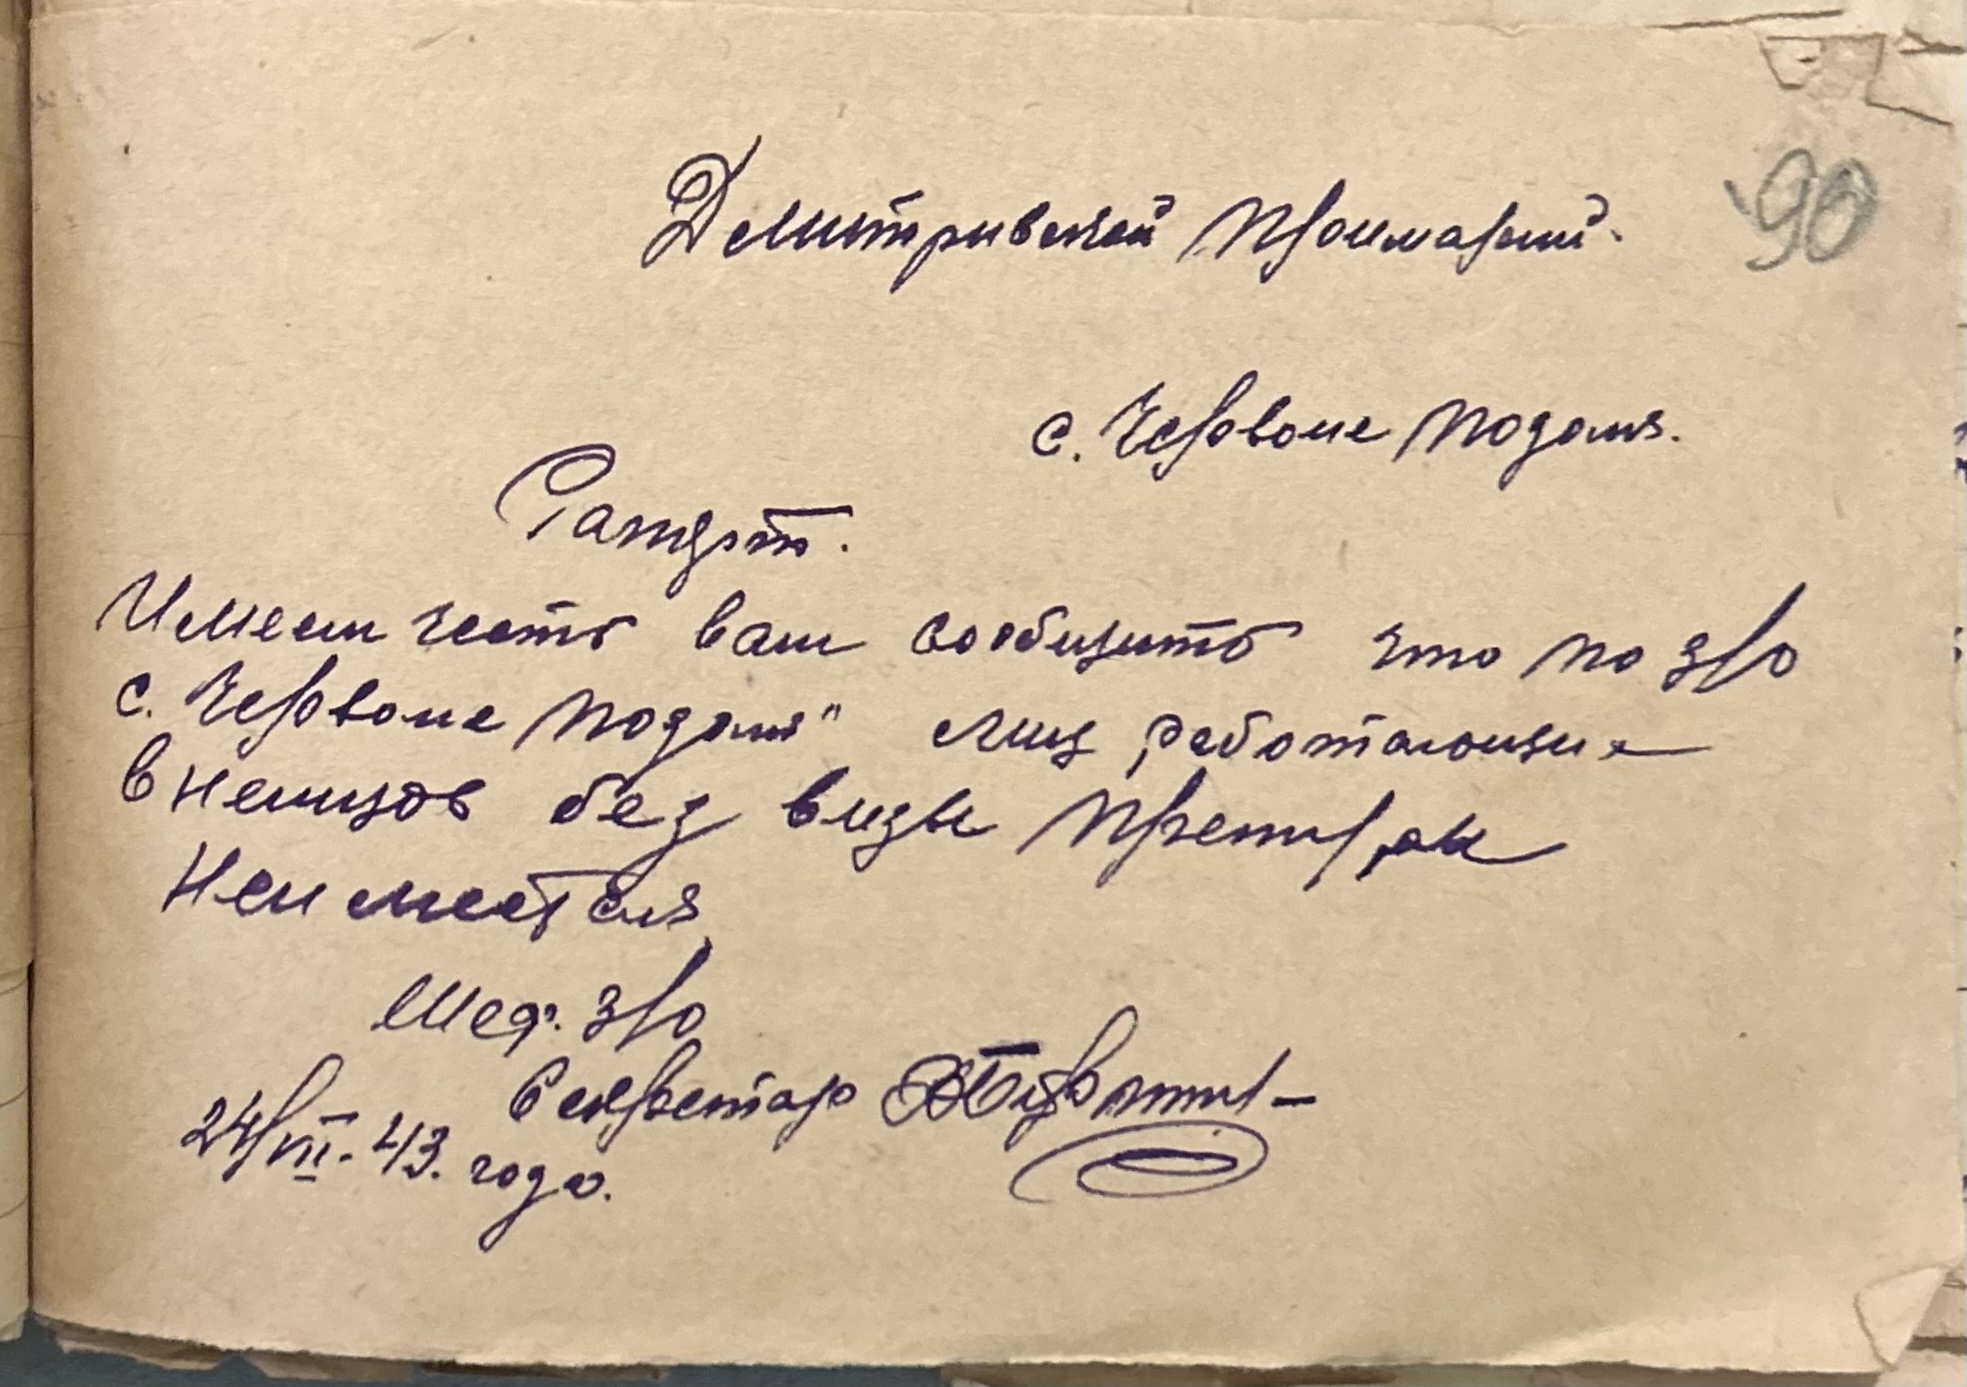 90
Дмитривской Примарий.
с. Червоне Подоля.
Рапорт.
Имеем честь вам сообщить что по з/о
с. Червоне Подоля" лиц работающие
в немцов без визы Претуры
Неимеется
Шеф. з/о
Секретар
24/VII. 43. года.